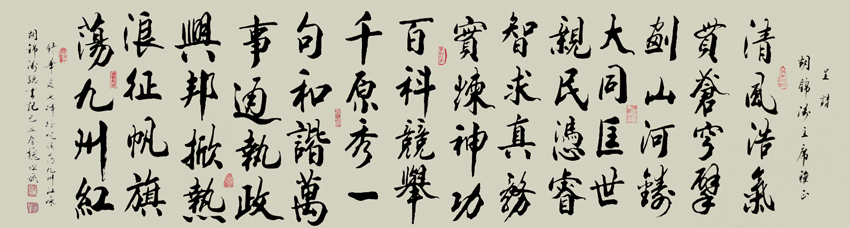 呈詩
胡錦濤主席雅正
清風浩氣
貫蒼穹擘
劃山河鑄
大同匡世
親民憑睿
智求真務
實煉神功
百科競舉
千原秀一
句和諧萬
事通執政
興邦掀熱
浪征帆旗
蕩九州紅
胡錦濤總書記己丑金秋